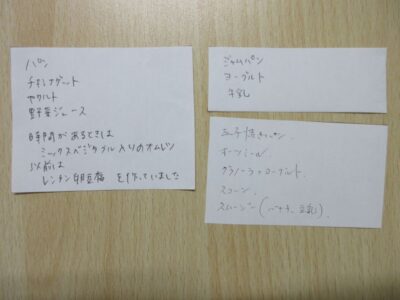 パン
チキンナゲット
ヤクルト
野菜ジュース
時間があるときは
ミックスベジタブル入りのオムレツ
以前は
レンチン卵豆腐 を作っていました
ジャムパン
ヨーグルト
牛乳
玉子焼きパン
オートミール
グラノーラ+ヨーグルト
スコーン
スムージー(バナナ、豆乳)